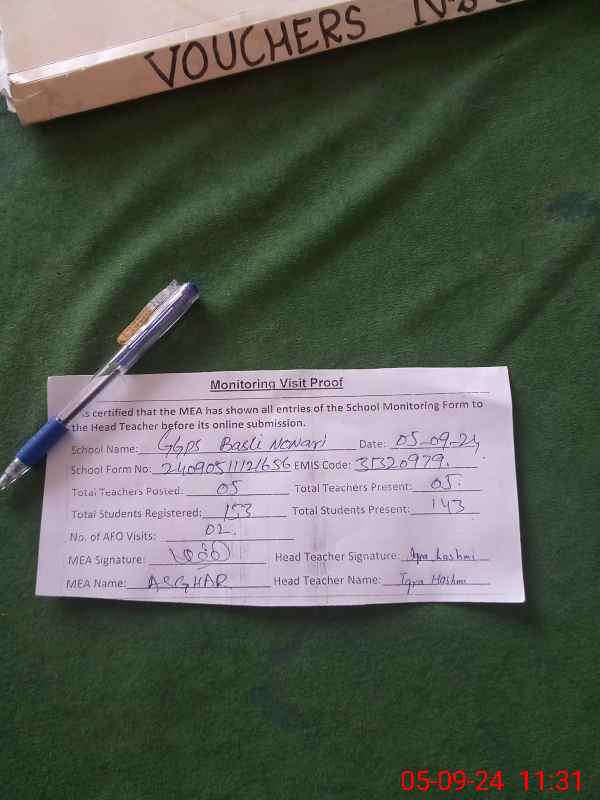 VOUCHERS
Monitoring Visit Proof
is certified that the MEA has shown all entries of the School Monitoring Form to
the Head Teacher before its online submission.
School Name: GGPS Basti Nonari Date: 05-09-24
School Form No: 24090511121656 EMIS Code: 31320979.
Total Teachers Posted: 05 Total Teachers Present: 05.
Total Students Registered: 153 Total Students Present: 143
No. of AFO Visits: 02.
MEA Signature: Head Teacher Signature: Iqra Hashmi
MEA Name: ASGHAR Head Teacher Name: Iqra Hashmi
05-09-24 11:31